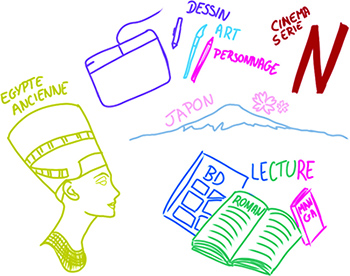 DESSIN
ART
PERSONNAGE
CINEMA
SERIE
N
EGYPTE
ANCIENNE
JAPON
LECTURE
BD
ROMAN
MAN
GA